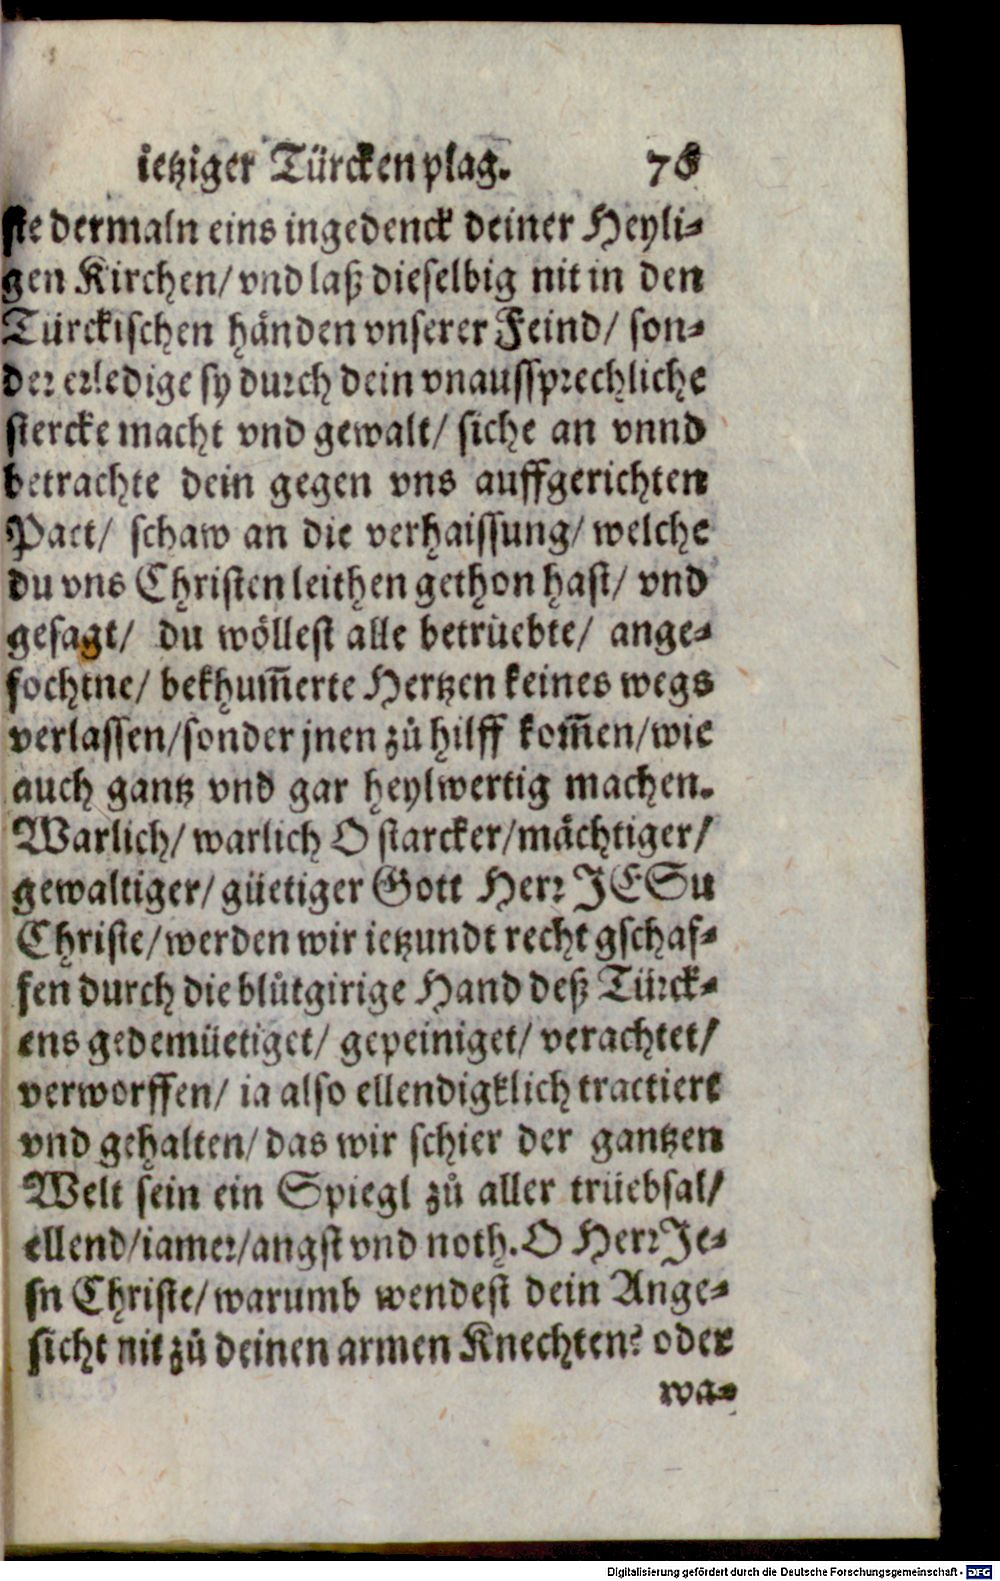 ietziger Türcken plag. 76
ste dermaln eins ingedenck deiner Heyli-
gen Kirchen/ vnd laß dieselbig nit in den
Türckischen händen vnserer Feind/ son-
der erledige sy durch dein vnaussprechliche
stercke macht vnd gewalt/ siche an vnnd
betrachte dein gegen vns auffgerichten
Pact/ schaw an die verhaissung/ welche
du vns Christen leithen gethon hast/ vnd
gesagt/ du wöllest alle betrüebte/ ange-
fochtne/ bekhum̃erte Hertzen keines wegs
verlassen/ sonder jnen zů hilff kom̃en/ wie
auch gantz vnd gar heylwertig machen.
Warlich/ warlich O starcker/ mächtiger/
gewaltiger/ güetiger Gott Herr JESu
Christe/ werden wir ietzundt recht gschaf-
fen durch die blůtgirige Hand deß Türck-
ens gedemüetiget/ gepeiniget/ verachtet/
verworffen/ ia also ellendigklich tractiert
vnd gehalten/ das wir schier der gantzen
Welt sein ein Spiegl zů aller trüebsal/
ellend/ iamer/ angst vnd noth. O Herr Je-
sn Christe/ warumb wendest dein Ange-
sicht nit zů deinen armen Knechten? oder
wa-
Digitalisierung gefördert durch die Deutsche Forschungsgemeinschaft - DFG